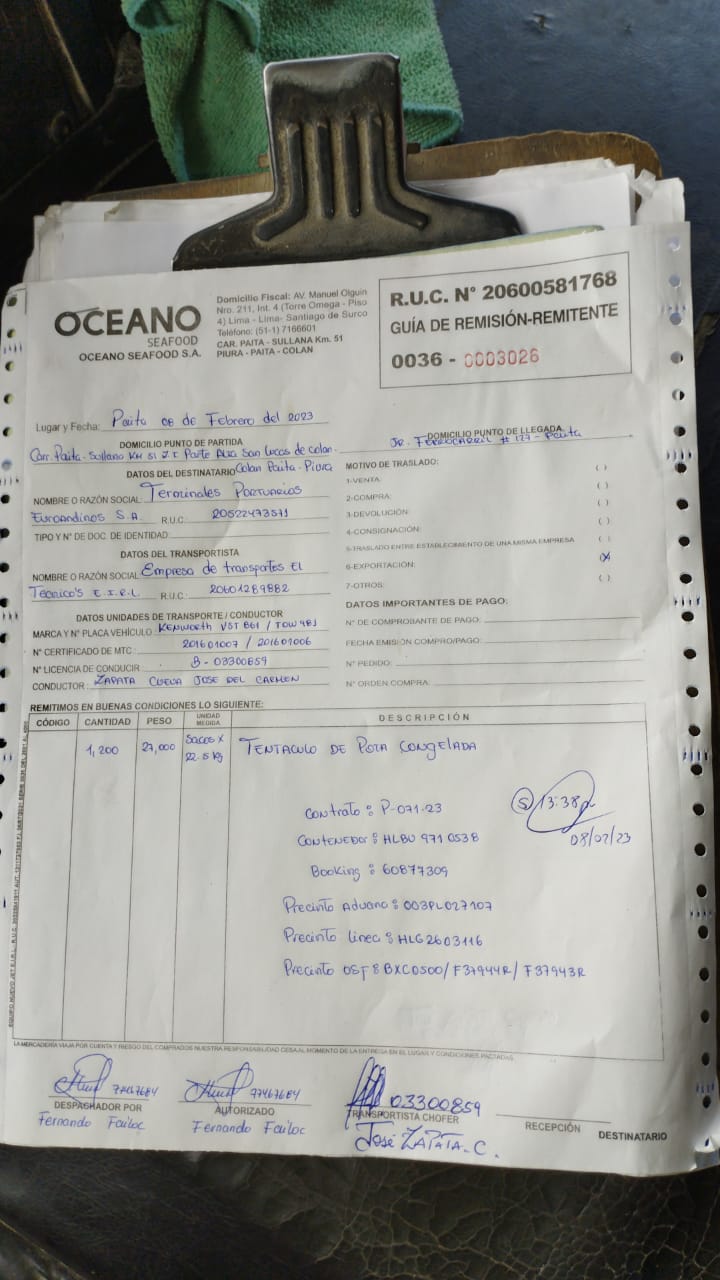 OCEANO
SEAFOOD
OCEANO SEAFOOD S.A.
Domicilio Fiscal: AV. Manuel Olguin
Nro. 211, Int. 4 (Torre Omega - Piso
4) Lima - Lima- Santiago de Surco
Teléfono: (51-1) 7166601
CAR. PAITA - SULLANA Km. 51
PIURA - PAITA - COLAN
R.U.C. N° 20600581768
GUÍA DE REMISIÓN-REMITENTE
0036 - 0003026
Lugar y Fecha: Paita 08 de Febrero del 2023
DOMICILIO PUNTO DE PARTIDA
Carr. Paita - Sullana KM 51 Z.I Parte Alta San Lucas de Colan.
Colan Paita - Piura
DOMICILIO PUNTO DE LLEGADA
JR. FERROCARRIL # 127 - Paita
DATOS DEL DESTINATARIO
NOMBRE O RAZÓN SOCIAL Terminales Portuarios
Euroandinos S.A. R.U.C: 20522473571
TIPO Y N° DE DOC. DE IDENTIDAD
DATOS DEL TRANSPORTISTA
NOMBRE O RAZÓN SOCIAL Empresa de transportes El
Tecnico's E.I.R.L R.U.C: 20601289882
DATOS UNIDADES DE TRANSPORTE / CONDUCTOR
MARCA Y N° PLACA VEHÍCULO KENWORTH V5T 861 / TOW 983
N° CERTIFICADO DE MTC: 201601007 / 201601006
N° LICENCIA DE CONDUCIR B - 03300859
CONDUCTOR: ZAPATA CUEVA JOSE DEL CARMEN
MOTIVO DE TRASLADO:
1-VENTA: ( )
2-COMPRA: ( )
3-DEVOLUCIÓN: ( )
4-CONSIGNACIÓN: ( )
5-TRASLADO ENTRE ESTABLECIMIENTO DE UNA MISMA EMPRESA ( )
6-EXPORTACIÓN: (X)
7-OTROS: ( )
DATOS IMPORTANTES DE PAGO:
N° DE COMPROBANTE DE PAGO:
FECHA EMISIÓN COMPRO/PAGO:
N° PEDIDO:
N° ORDEN COMPRA:
REMITIMOS EN BUENAS CONDICIONES LO SIGUIENTE:
CÓDIGO CANTIDAD PESO UNIDAD MEDIDA DESCRIPCIÓN
1,200 27,000 Sacos x 22.5 kg TENTACULO DE POTA CONGELADA
Contrato: P-071-23
Contenedor: HLBU 971 0538
Booking: 60877309
Precinto Aduana: 003PL027107
Precinto Linea: HLG2603116
Precinto OSF8BXC0500/F37944R/F37943R
S 13:38p
08/02/23
LA MERCADERÍA VIAJA POR CUENTA Y RIESGO DEL COMPRADOS NUESTRA RESPONSABILIDAD CESA AL MOMENTO DE LA ENTREGA EN EL LUGAR Y CONDICIONES PACTADAS.
77467684
DESPACHADOR POR
Fernando Failoc
77467684
AUTORIZADO
Fernando Failoc
03300859
TRANSPORTISTA CHOFER
José ZAPATA. C.
RECEPCIÓN DESTINATARIO